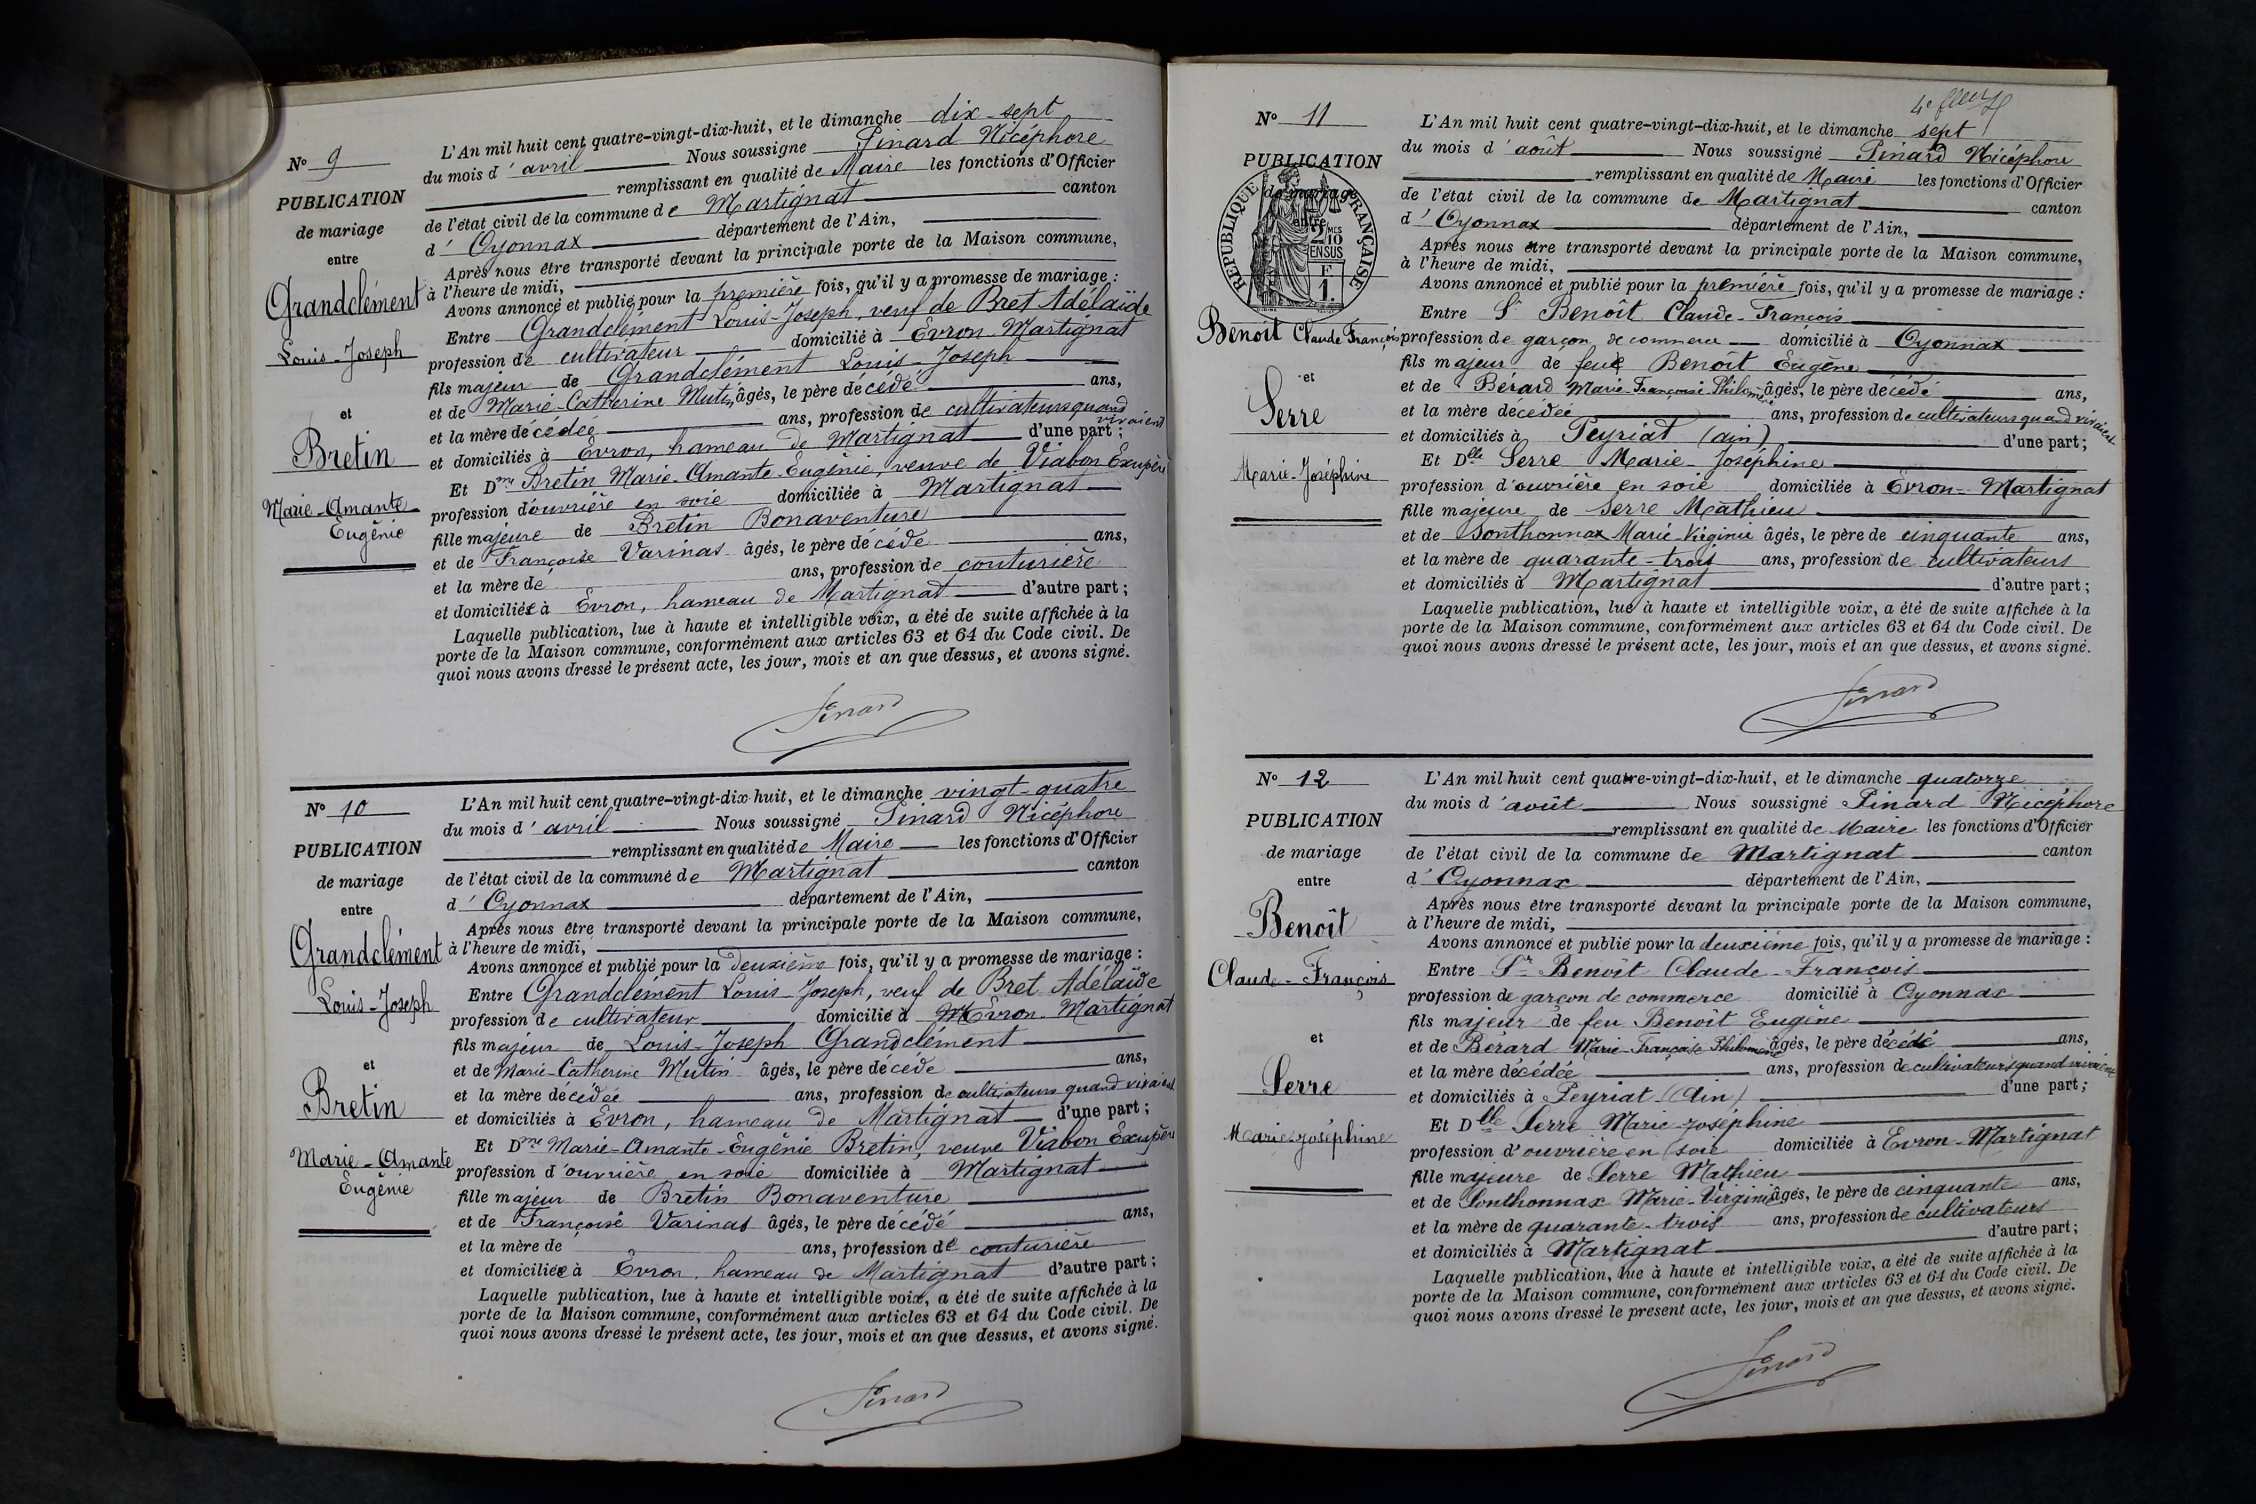 N° 9
PUBLICATION
de mariage
entre
Grandclément
Louis-Joseph
et
Bretin
Marie-Amante
Eugénie
L'An mil huit cent quatre-vingt-dix-huit, et le dimanche dix-sept
du mois d'avril Nous soussigné Pinard Nicéphore
remplissant en qualité de Maire les fonctions d'Officier
de l'état civil de la commune de Martignat canton
d'Oyonnax département de l'Ain,
Après nous être transporté devant la principale porte de la Maison commune,
à l'heure de midi,
Avons annoncé et publié pour la première fois, qu'il y a promesse de mariage :
Entre Grandclément Louis-Joseph, veuf de Bret Adélaïde
profession de cultivateur domicilié à Evron-Martignat
fils majeur de Grandclément Louis-Joseph
et de Marie-Catherine Mutin âgés, le père décédé ans,
et la mère décédée ans, profession de cultivateurs quand vivaient
et domiciliés à Evron, hameau de Martignat d'une part ;
Et Dme Bretin Marie-Amante-Eugénie, veuve de Viabon Exupère
profession d'ouvrière en soie domiciliée à Martignat
fille majeure de Bretin Bonaventure
et de Françoise Varinas âgés, le père décédé ans,
et la mère de ans, profession de couturière
et domiciliée à Evron, hameau de Martignat d'autre part ;
Laquelle publication, lue à haute et intelligible voix, a été de suite affichée à la
porte de la Maison commune, conformément aux articles 63 et 64 du Code civil. De
quoi nous avons dressé le présent acte, les jour, mois et an que dessus, et avons signé.
Pinard
N° 10
PUBLICATION
de mariage
entre
Grandclément
Louis-Joseph
et
Bretin
Marie-Amante
Eugénie
L'An mil huit cent quatre-vingt-dix-huit, et le dimanche vingt-quatre
du mois d'avril Nous soussigné Pinard Nicéphore
remplissant en qualité de Maire les fonctions d'Officier
de l'état civil de la commune de Martignat canton
d'Oyonnax département de l'Ain,
Après nous être transporté devant la principale porte de la Maison commune,
à l'heure de midi,
Avons annoncé et publié pour la deuxième fois, qu'il y a promesse de mariage :
Entre Grandclément Louis-Joseph, veuf de Bret Adélaïde
profession de cultivateur domicilié à Evron-Martignat
fils majeur de Louis-Joseph Grandclément
et de Marie-Catherine Mutin âgés, le père décédé ans,
et la mère décédée ans, profession de cultivateurs quand vivaient
et domiciliés à Evron, hameau de Martignat d'une part ;
Et Dme Marie-Amante-Eugénie Bretin, veuve Viabon Exupère
profession d'ouvrière en soie domiciliée à Martignat
fille majeur de Bretin Bonaventure
et de Françoise Varinas âgés, le père décédé ans,
et la mère de ans, profession de couturière
et domiciliée à Evron, hameau de Martignat d'autre part ;
Laquelle publication, lue à haute et intelligible voix, a été de suite affichée à la
porte de la Maison commune, conformément aux articles 63 et 64 du Code civil. De
quoi nous avons dressé le présent acte, les jour, mois et an que dessus, et avons signé.
Pinard
N° 11
PUBLICATION
de mariage
entre
RÉPUBLIQUE FRANÇAISE
2/10 MES
EN SUS
F
1.
Benoît Claude François
et
Serre
Marie-Joséphine
L'An mil huit cent quatre-vingt-dix-huit, et le dimanche sept
du mois d'août Nous soussigné Pinard Nicéphore
remplissant en qualité de Maire les fonctions d'Officier
de l'état civil de la commune de Martignat canton
d'Oyonnax département de l'Ain,
Après nous être transporté devant la principale porte de la Maison commune,
à l'heure de midi,
Avons annoncé et publié pour la première fois, qu'il y a promesse de mariage :
Entre Sr Benoît Claude-François
profession de garçon de commerce domicilié à Oyonnax
fils majeur de feu Benoît Eugène
et de Bérard Marie-Françoise Philomène âgés, le père décédé ans,
et la mère décédée ans, profession de cultivateurs quand vivaient
et domiciliés à Peyriat (Ain) d'une part ;
Et Dlle Serre Marie-Joséphine
profession d'ouvrière en soie domiciliée à Evron-Martignat
fille majeure de Serre Mathieu
et de Sonthonnax Marie-Virginie âgés, le père de cinquante ans,
et la mère de quarante-trois ans, profession de cultivateurs
et domiciliés à Martignat d'autre part ;
Laquelle publication, lue à haute et intelligible voix, a été de suite affichée à la
porte de la Maison commune, conformément aux articles 63 et 64 du Code civil. De
quoi nous avons dressé le présent acte, les jour, mois et an que dessus, et avons signé.
Pinard
N° 12
PUBLICATION
de mariage
entre
Benoît
Claude-François
et
Serre
Marie-Joséphine
L'An mil huit cent quatre-vingt-dix-huit, et le dimanche quatorze
du mois d'août Nous soussigné Pinard Nicéphore
remplissant en qualité de Maire les fonctions d'Officier
de l'état civil de la commune de Martignat canton
d'Oyonnax département de l'Ain,
Après nous être transporté devant la principale porte de la Maison commune,
à l'heure de midi,
Avons annoncé et publié pour la deuxième fois, qu'il y a promesse de mariage :
Entre Sr Benoît Claude-François
profession de garçon de commerce domicilié à Oyonnax
fils majeur de feu Benoît Eugène
et de Bérard Marie-Françoise Philomène âgés, le père décédé ans,
et la mère décédée ans, profession de cultivateurs quand vivaient
et domiciliés à Peyriat (Ain) d'une part ;
Et Dlle Serre Marie-Joséphine
profession d'ouvrière en soie domiciliée à Evron-Martignat
fille majeure de Serre Mathieu
et de Sonthonnax Marie-Virginie âgés, le père de cinquante ans,
et la mère de quarante-trois ans, profession de cultivateurs
et domiciliés à Martignat d'autre part ;
Laquelle publication, lue à haute et intelligible voix, a été de suite affichée à la
porte de la Maison commune, conformément aux articles 63 et 64 du Code civil. De
quoi nous avons dressé le présent acte, les jour, mois et an que dessus, et avons signé.
Pinard